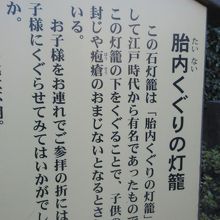 胎内くぐりの灯籠
たいない
この石灯籠は「胎内くぐりの灯籠
して江戸時代から有名であったもので
この灯籠の下をくぐることで、子供の
封じや疱瘡のおまじないとなるとさ
いる。
お子様をお連れでご参拝の折には
子様にくぐらせてみてはいかがでし
か。